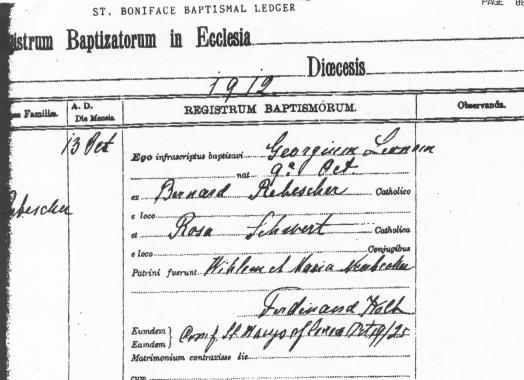 ST. BONIFACE BAPTISMAL LEDGER
PAGE
istrum Baptizatorum in Ecclesia
Diœcesis
1912
Familiæ.
A. D.
Die Mensis
REGISTRUM BAPTISMORUM.
Observanda.
13 Oct
Ego infrascriptus baptizavi Georgium
nat 9a Oct.
ex Bernard Rebescher Catholico
Rebescher
e loco
et Rosa Schwert Catholica
e loco Conjugibus
Patrini fuerunt Wilhlem et Maria
Ferdinand
Eumdem
Eamdem
Conf. St. Marys of 25
Matrimonium contraxisse die
cum